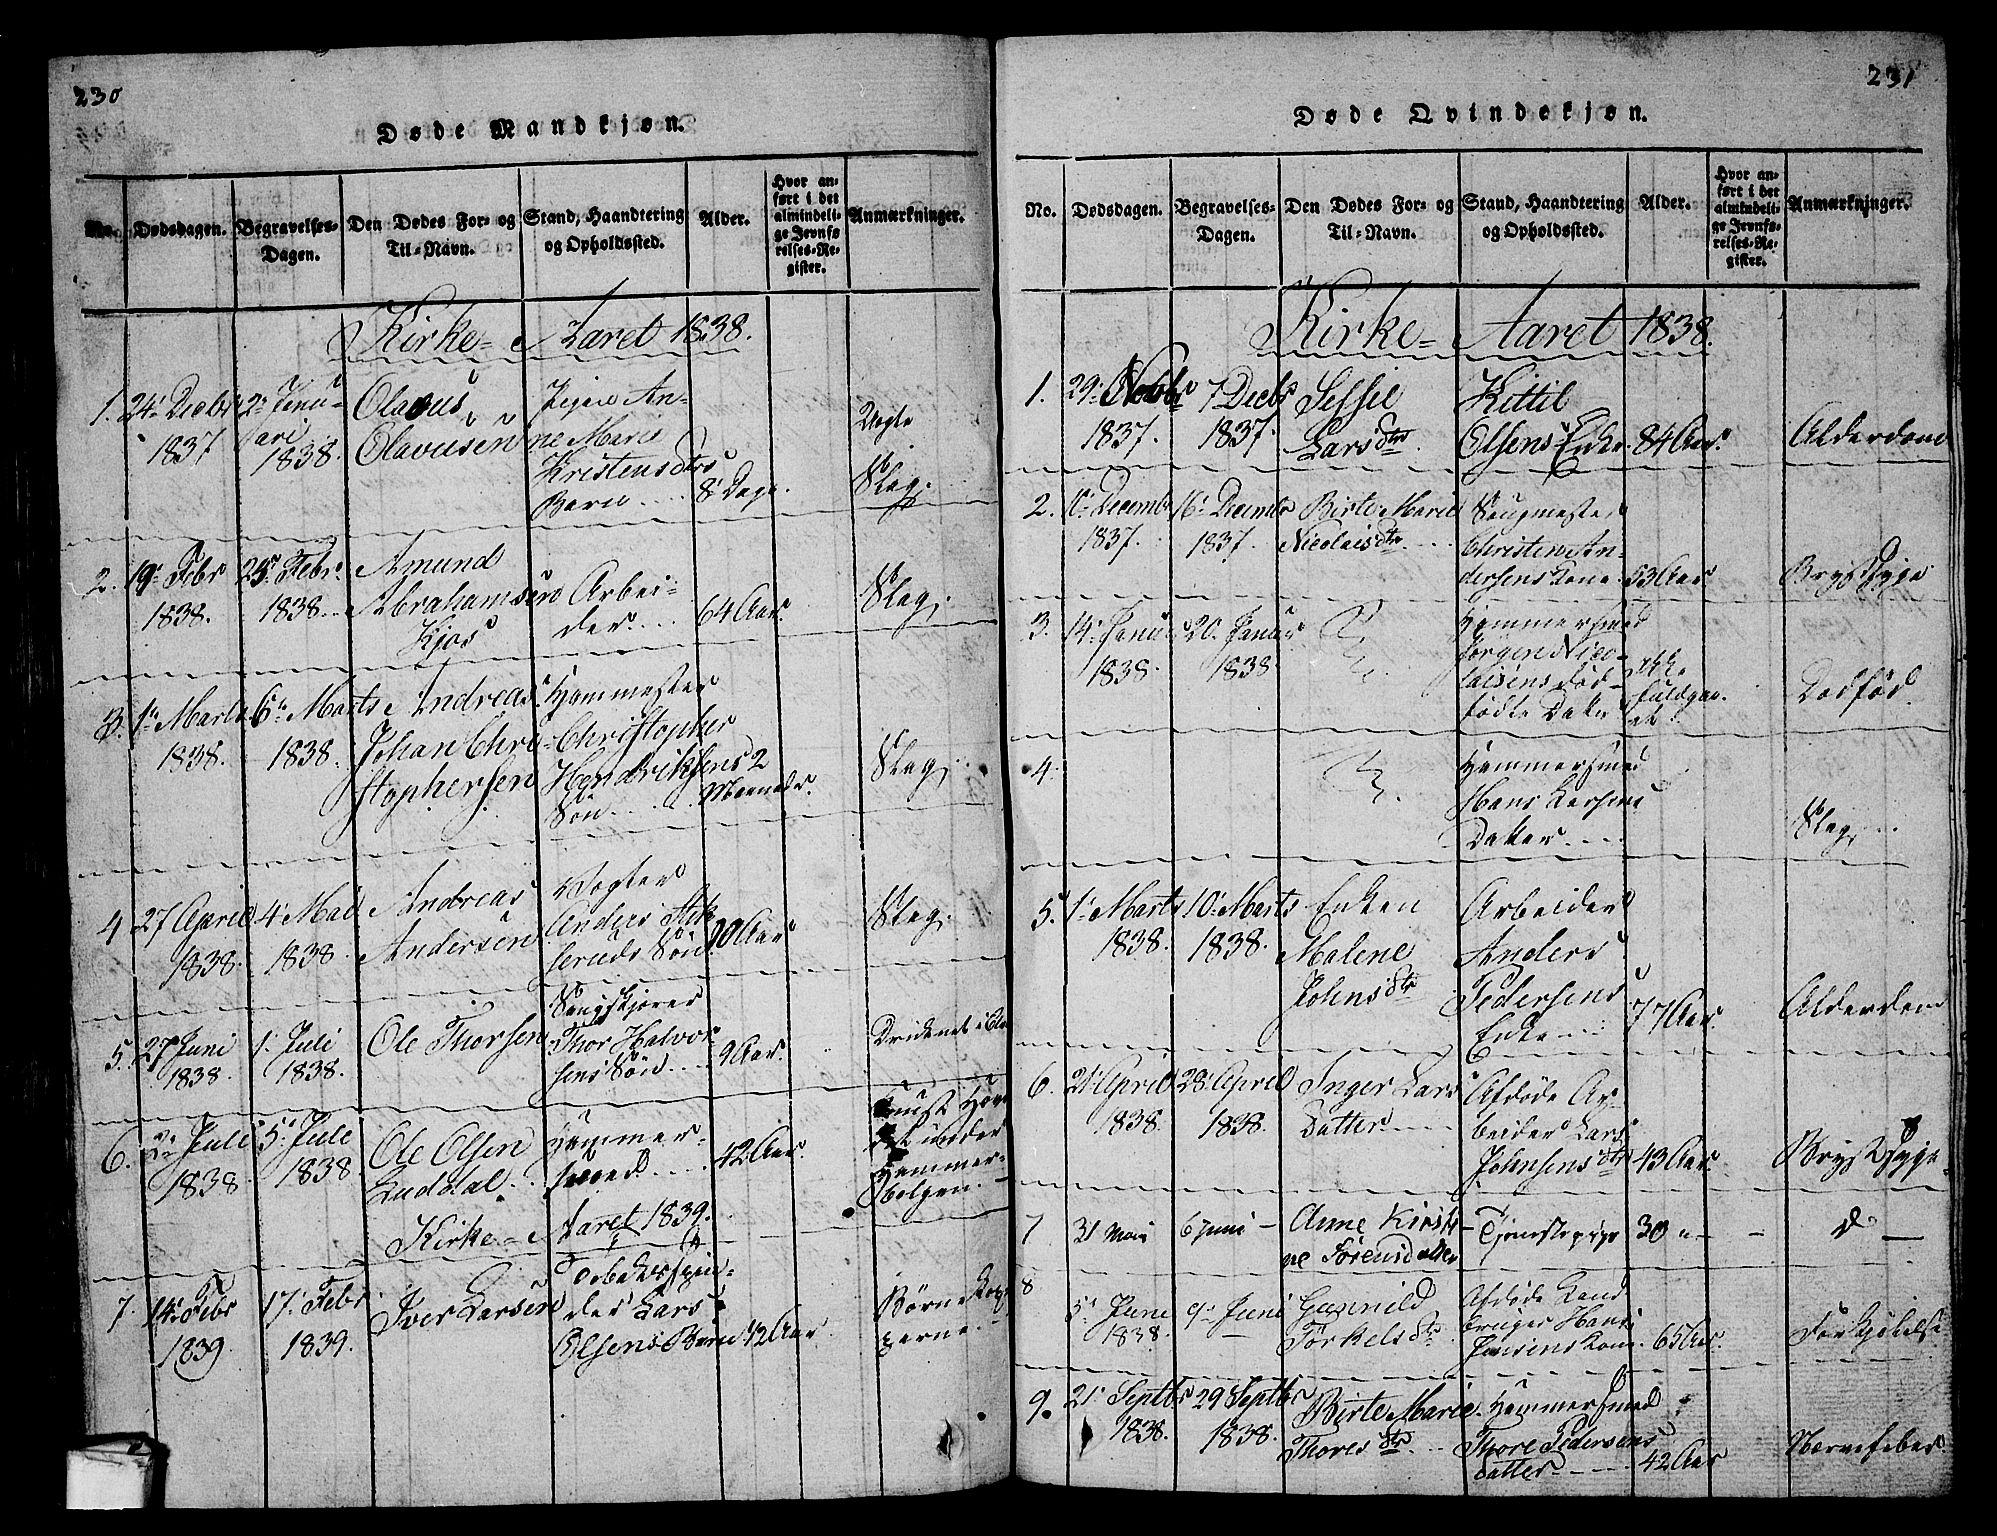 230
Døde Mandkjøn.
No. Dødsdagen. Begravelses-Dagen. Den Dødes For- og Til-Navn. Stand, Haandtering og Opholdssted. Alder. Hvor anført i det almindelige Jevnførelses-Register. Anmærkninger.
Kirke-Aaret 1838.
1. 24. Decbr 2. Janu- Olavus Pigen An-
1837 ari 1838. Olavusen ne Marie
Kristensdtrs
Barn 8 Dage. Slag.
2. 19. Febr 25. Febr. Amund
1838. 1838. Abrahamsen Arbei-
Kjos der. 64 Aar. Slag.
3. 1. Marts 6. Marts Andreas
1838. 1838. Johan Chri- Christopher
stophersen Hendriksens 2
Søn Maaneder. Slag.
4 27 April 4. Mai Andreas Vogter
1838. 1838. Andersen Anders
Søn Aar Slag.
5. 27 Juni 1. Juli Ole Thorsen Thor Halvor-
1838. 1838. sens Søn 9 Aar.
6. 2. Juli 5. Juli Ole Olsen Hammer-
1838 1838 Luddal. smed 42 Aar. under
Hammer-
Bølgen.
Kirke-Aaret 1839.
7. 14. Febr 17. Febr. Iver Larsen
1839 1839. der Lars
Olsens Barn 12 Aar. Børnekop-
perne.
231
Døde Qvindekjøn.
No. Dødsdagen. Begravelses-Dagen. Den Dødes For- og Til-Navn. Stand, Haandtering og Opholdssted. Alder. Hvor anført i det almindelige Jevnførelses-Register. Anmærkninger.
Kirke-Aaret 1838.
1. 29. Novbr 7 Decbr Sessie Kittil
1837. 1837. Larsdtr. Olsens Enke. 84 Aar. Alderdom
2. 10. Decembr 16. Decembr Birte Marie Saugmester
1837. 1837. Nicolaisdtr Christen An-
dersens Kone. 53 Aar Brystsyge
3. 14. Januar 20. Januar Hammersmed
1838. 1838. Jørgen Nico-
laisens Død- ikke
fødte Datter fuldgaa-
et. Dødfød.
4. Hammersmed
Hans Larsens
Datter Slag.
5. 1. Marts 10. Marts Enken Arbeider
1838. 1838. Malene Anders
Johnsdtr Pedersens
Enke 77 Aar. Alderdom
6. 21. April 28. April Inger Lars Afdøde Ar-
1838. 1838. Datter beider Lars
Johnsens Dtr 43 Aar. Brystsyge.
7 31 Mai 6 Juni Anne Kirsti- Tjenestepige 30 "
ne Sørensdatter
8 5. June 9. Juni Gunnild Afdøde Land-
1838. Torkelsdtr bruger Hans
Jensens Kone. 65 Aar. Forkjølelse
9. 21. Septbr 29 Septbr Birte Marie Hammersmed
1838. 1838. Thoresdtr Thore Pedersens
Datter 42 Aar Nervefeber